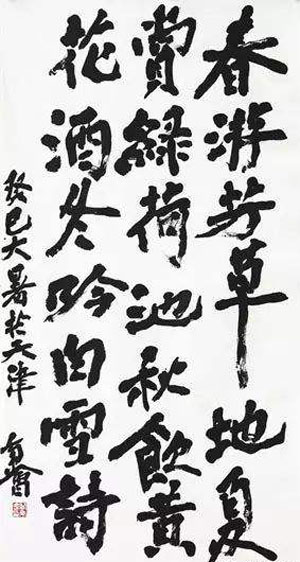 春游芳草地夏
賞綠荷池秋飲黃
花酒冬吟白雪詩
癸巳大暑於天津